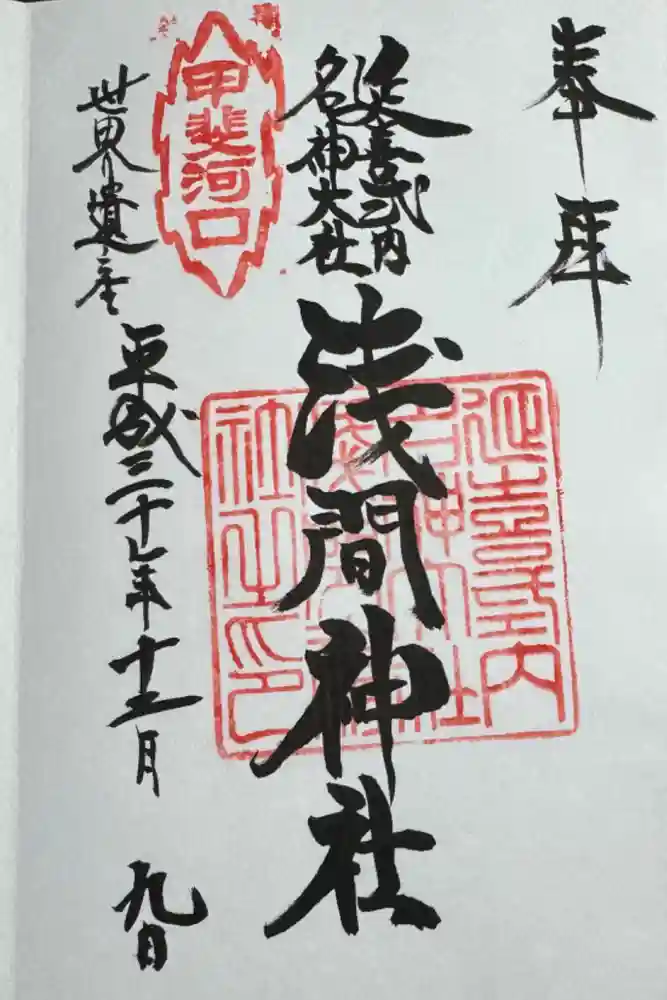 奉拝
延喜式内
名神大社
浅間神社
甲斐河口
世界遺産
平成三十年十二月九日
延喜式内
名神大社
浅間神
社之印